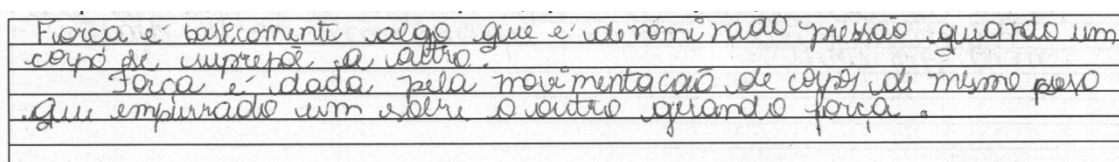 Força é basicamente algo que é denominado pressão quando um
corpo se suprepõe a outro.
Força é dada pela movimentação de corpos de mesmo peso
que empurrado um sobre o outro quando força.